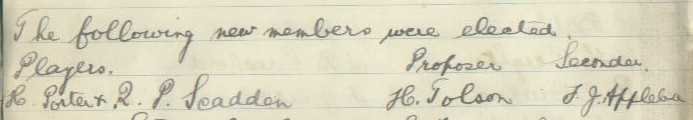 The following new members were elected.
Players. Proposer Seconder.
H. Porter & R. P. Scadden H. Tolson F. J. Appleba